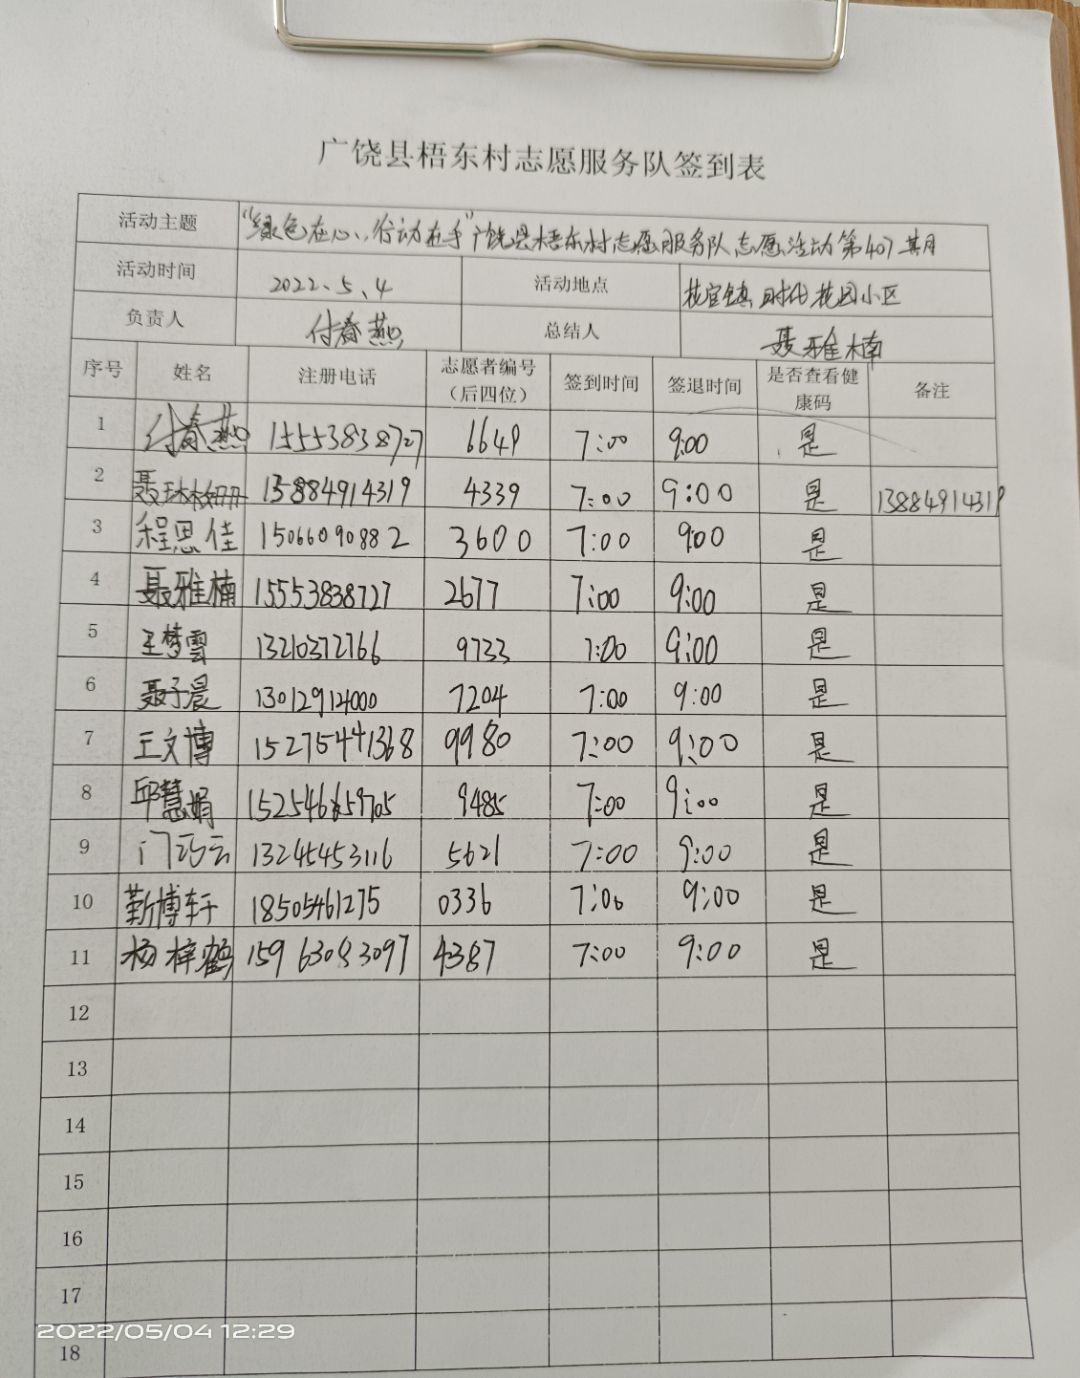 广饶县梧东村志愿服务队签到表
活动主题 “绿色在心,行动在手”广饶县梧东村志愿服务队志愿活动第407期
活动时间 2022.5.4 活动地点 花官镇时代花园小区
负责人 付春燕 总结人 聂雅楠
序号 姓名 注册电话 志愿者编号(后四位) 签到时间 签退时间 是否查看健康码 备注
1 付春燕 15553838727 6649 7:00 9:00 是
2 聂 13884914319 4339 7:00 9:00 是 13884914319
3 程思佳 15066090882 3600 7:00 9:00 是
4 聂雅楠 15553838727 2677 7:00 9:00 是
5 王梦雲 13210372766 9733 7:00 9:00 是
6 聂子晨 13012912000 7204 7:00 9:00 是
7 王文博 15275441368 9980 7:00 9:00 是
8 邱慧娟 9485 7:00 9:00 是
9 门巧云 13245453116 5621 7:00 9:00 是
10 靳博轩 18505461275 0336 7:00 9:00 是
11 杨梓鹤 15963083097 4387 7:00 9:00 是
12
13
14
15
16
17
2022/05/04 12:29
18